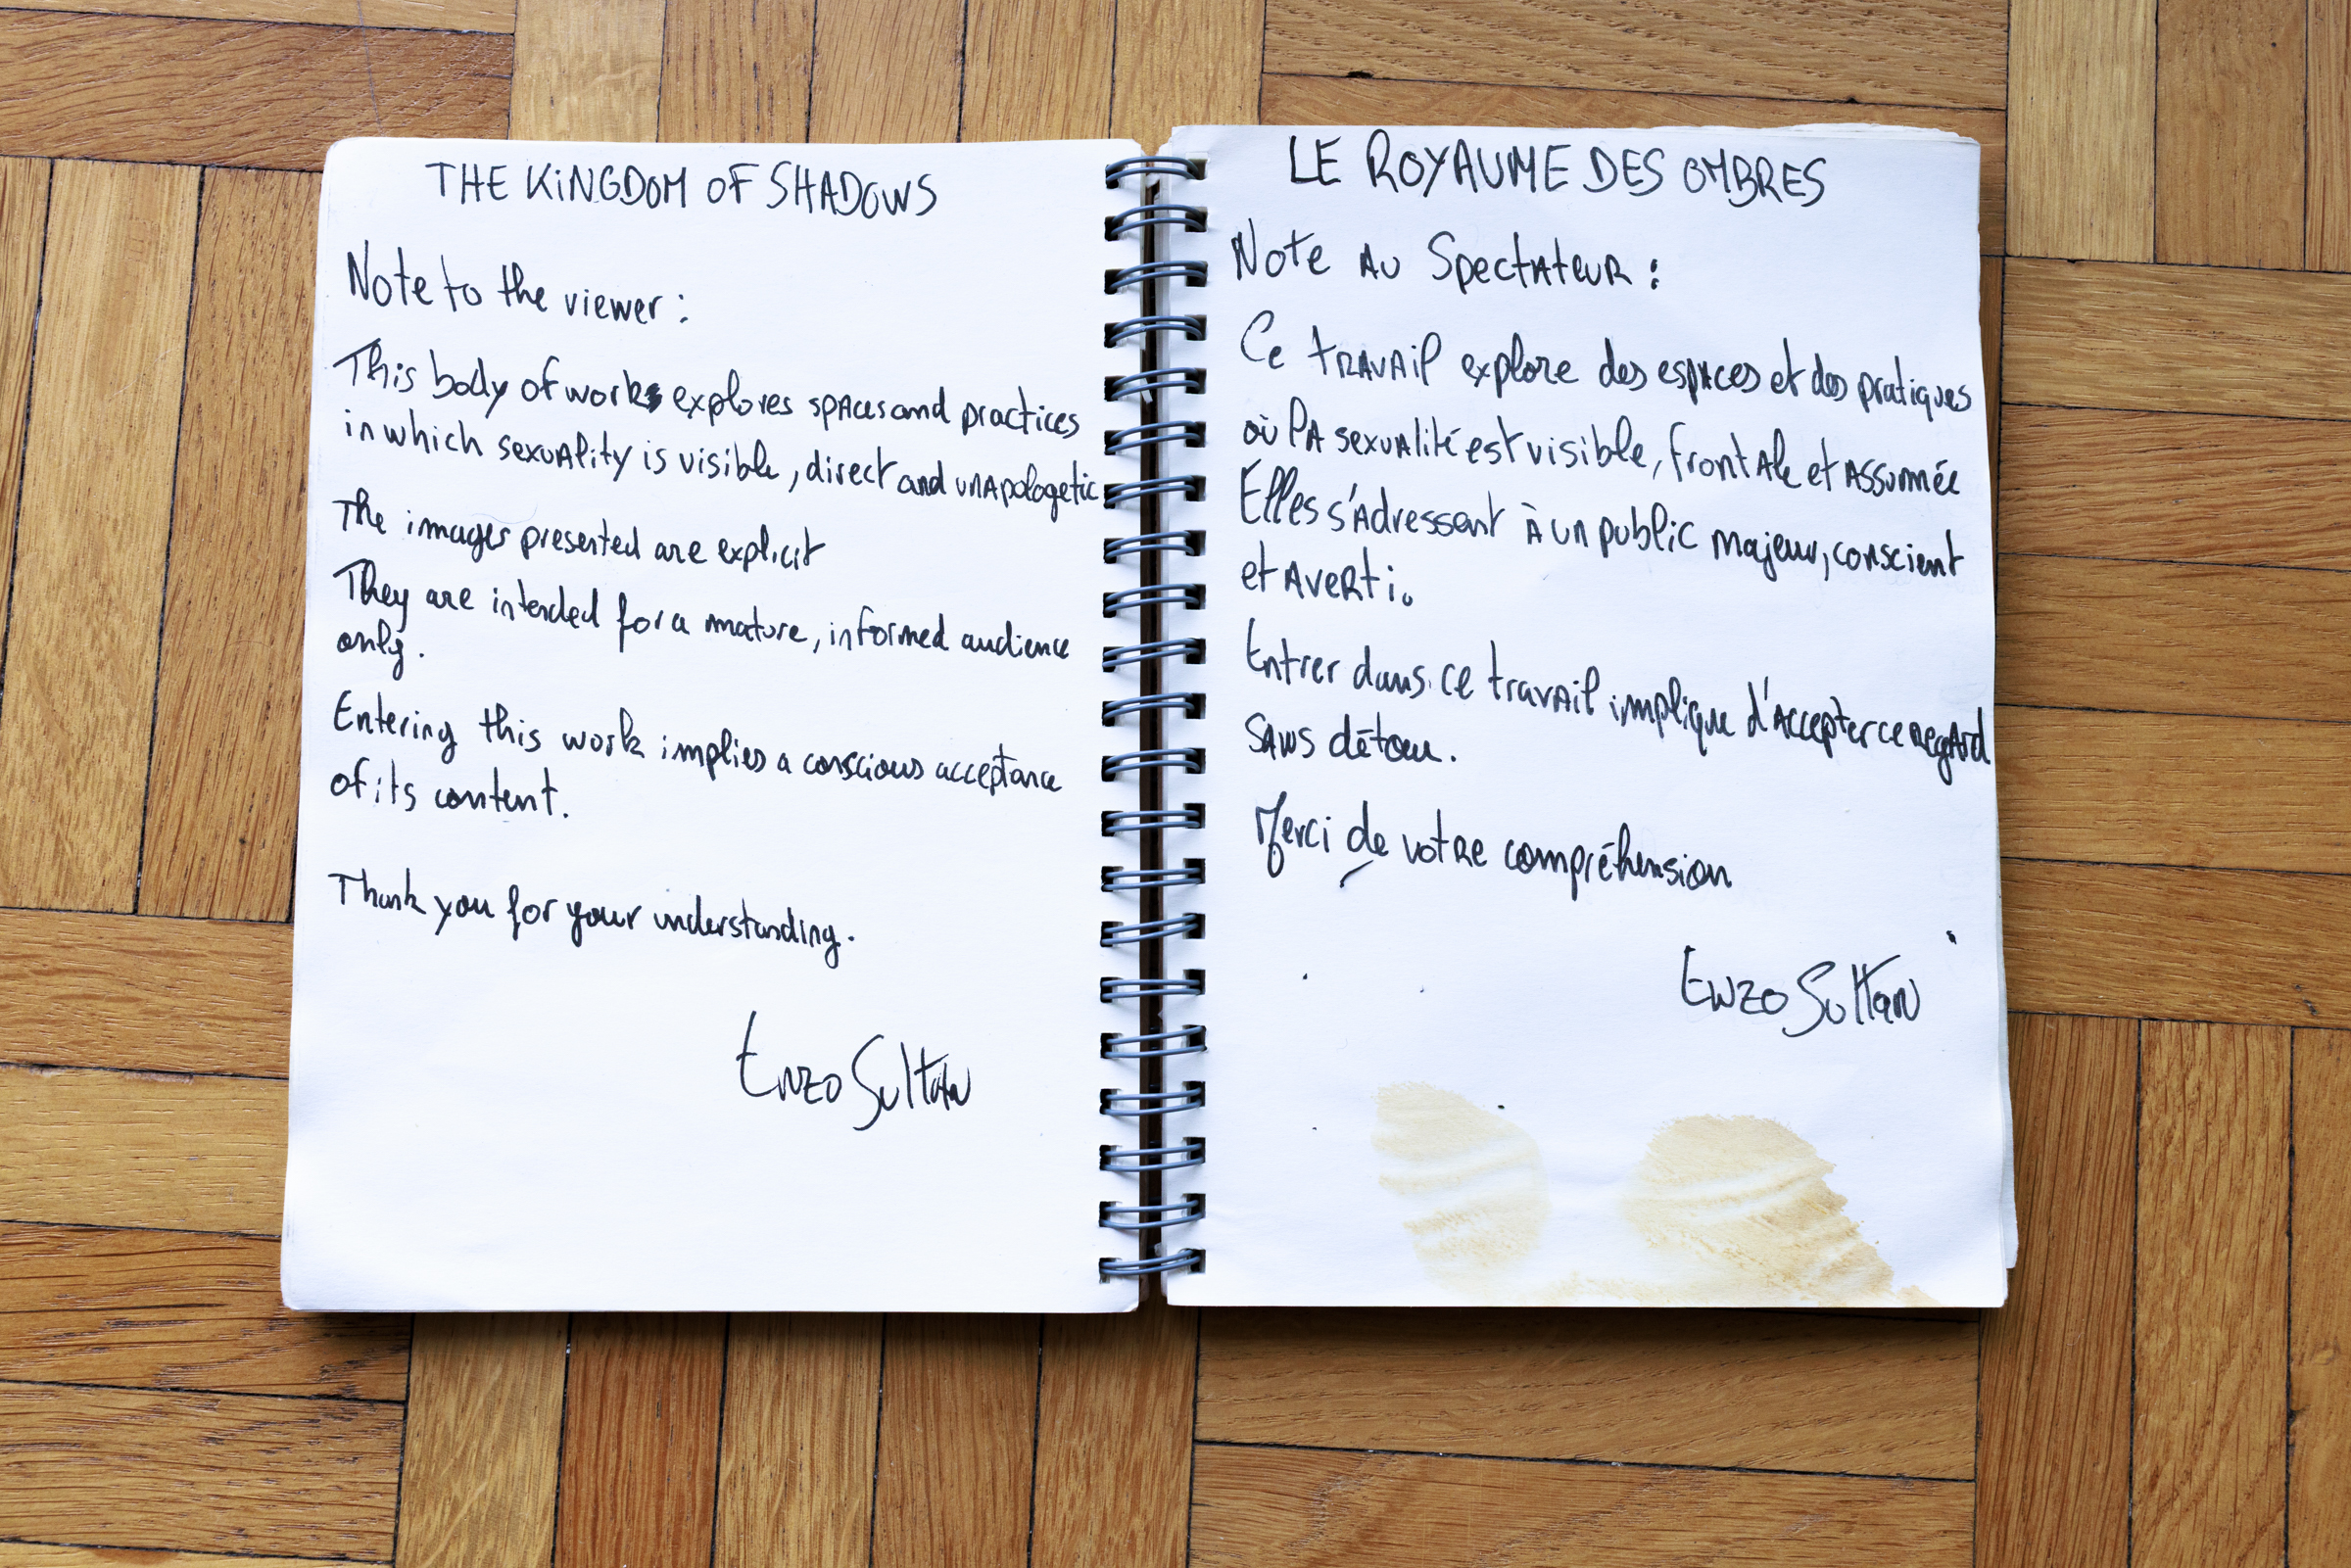 THE KINGDOM OF SHADOWS
Note to the viewer :
This body of works explores spaces and practices
in which sexuality is visible, direct and unapologetic
The images presented are explicit
They are intended for a mature, informed audience
only.
Entering this work implies a conscious acceptance
of its content.
Thank you for your understanding.
Enzo Sultan
LE ROYAUME DES OMBRES
Note au Spectateur :
Ce travail explore des espaces et des pratiques
où la sexualité est visible, frontale et assumée
Elles s'adressent à un public majeur, conscient
et averti.
Entrer dans ce travail implique d'accepter ce regard
sans détour.
Merci de votre compréhension
Enzo Sultan